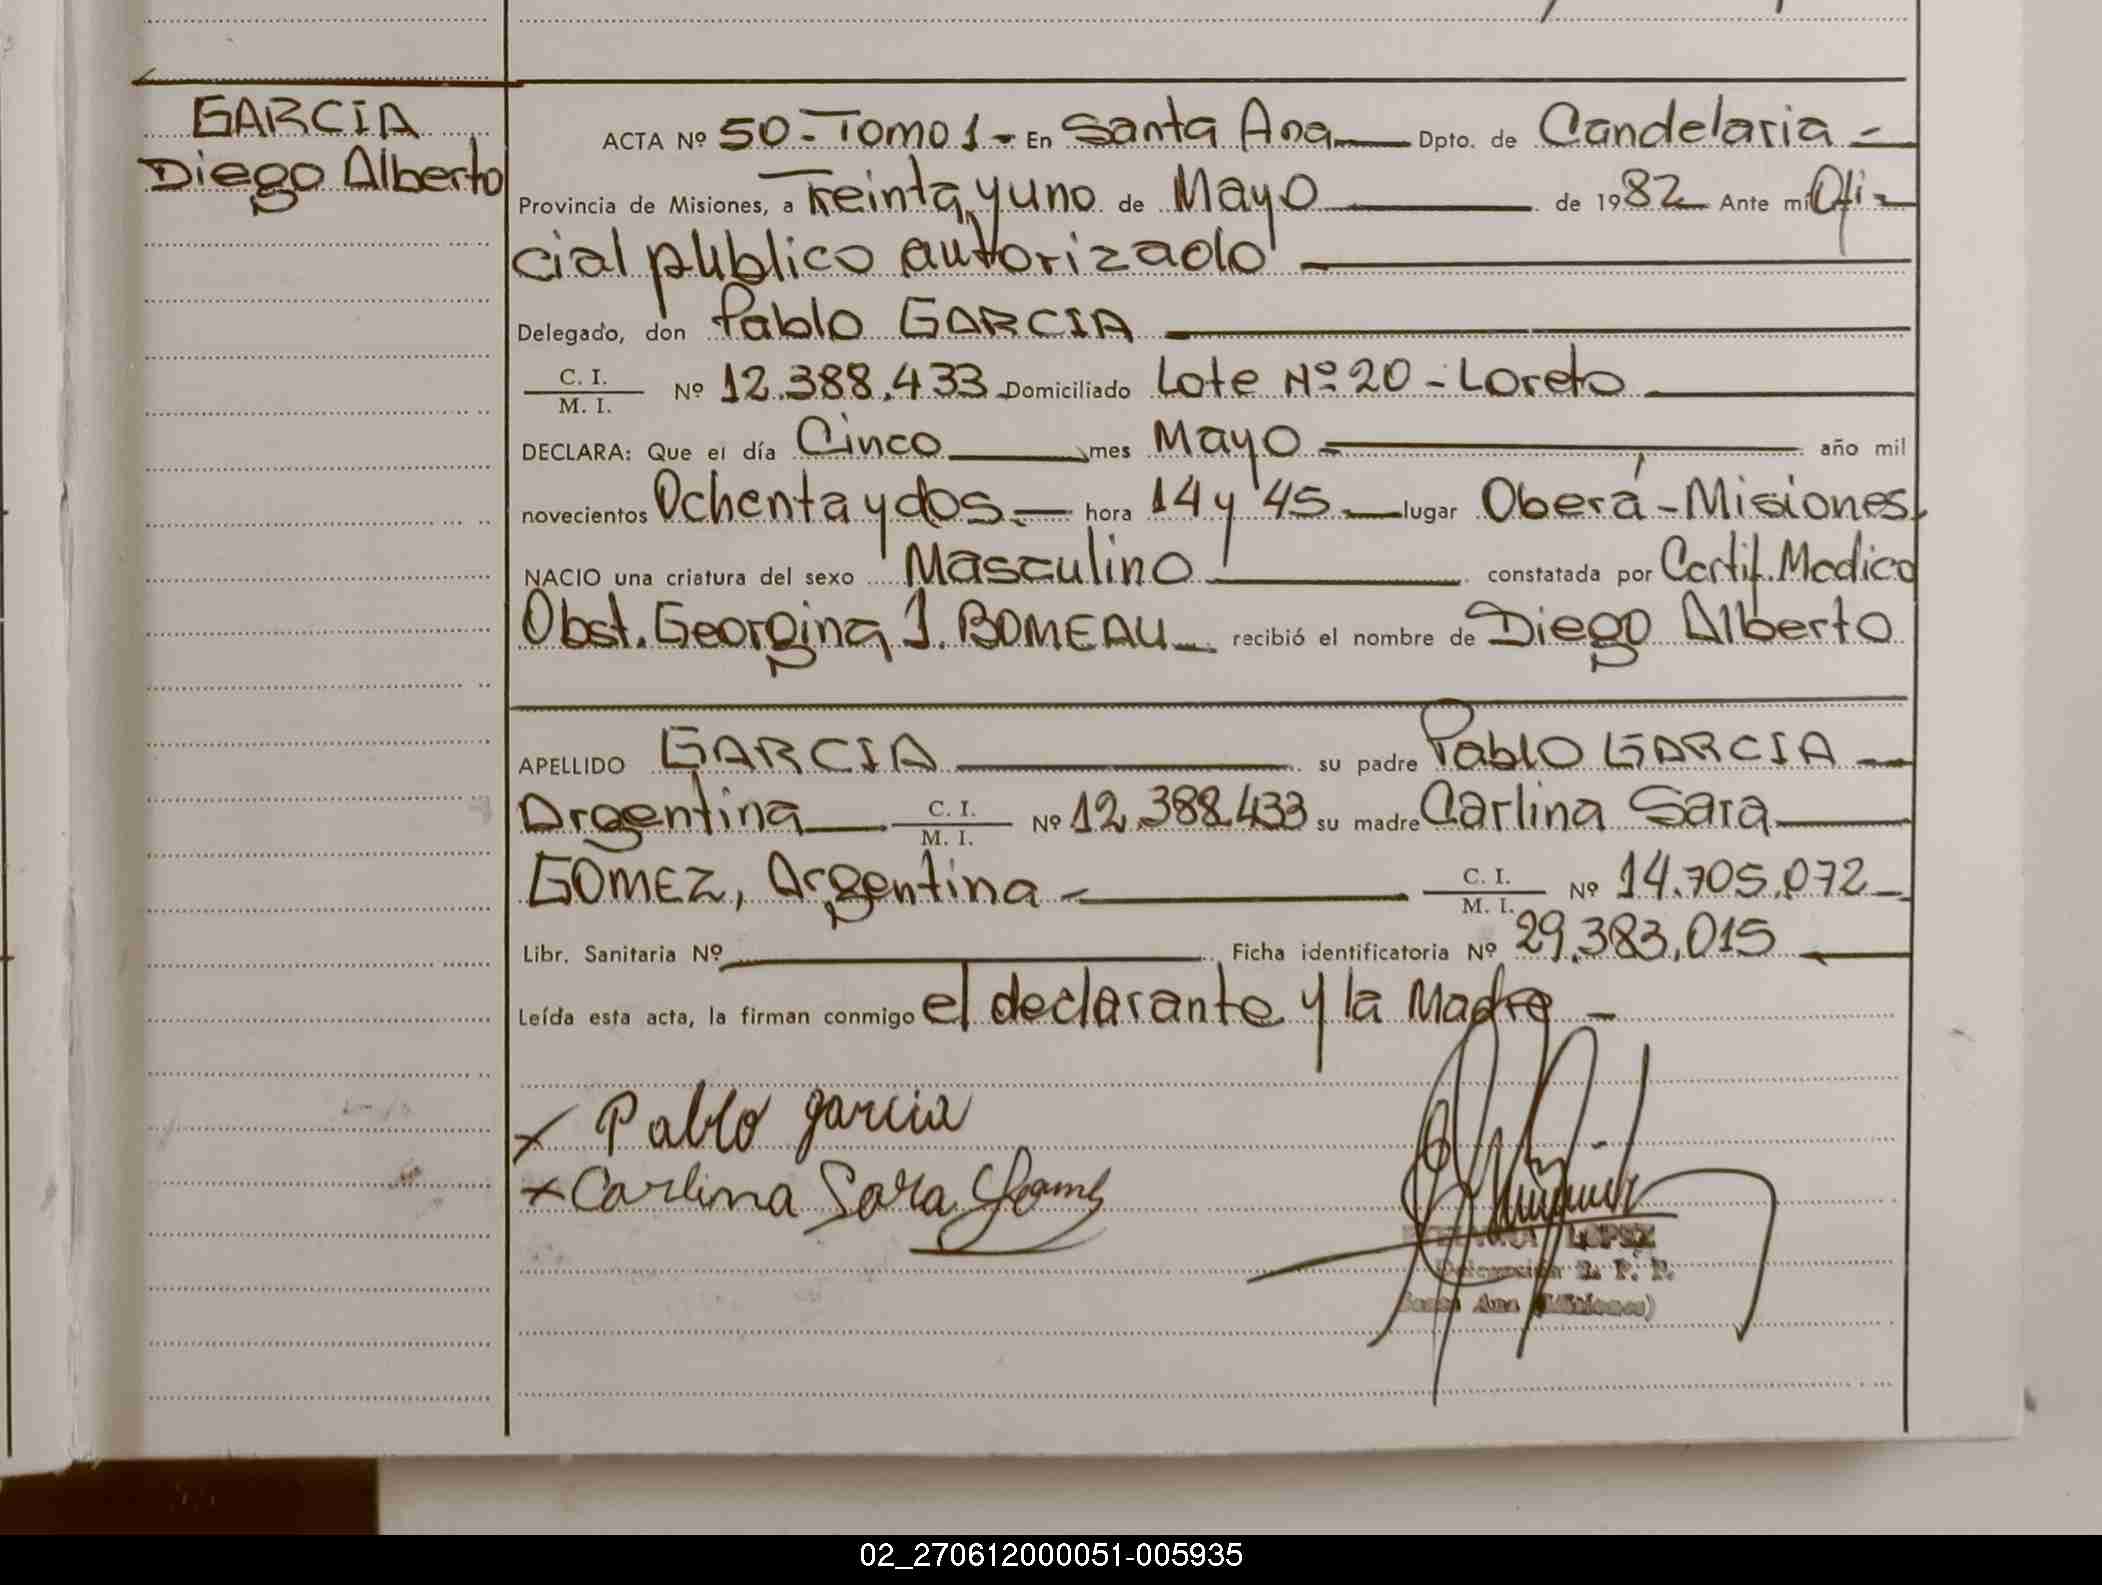 GARCIA
Diego Alberto
ACTA Nº 50 - Tomo 1 - En Santa Ana Dpto. de Candelaria -
Provincia de Misiones, a Treinta y uno de Mayo de 1982 Ante mi Ofi-
cial público autorizado
Delegado, don Pablo GARCIA
C. I. / M. I. Nº 12.388.433 Domiciliado Lote Nº 20 - Loreto
DECLARA: Que el día Cinco mes Mayo año mil
novecientos Ochenta y dos hora 14 y 45 lugar Oberá - Misiones
NACIO una criatura del sexo Masculino constatada por Certif. Medico
Obst. Georgina J. BOMEAU recibió el nombre de Diego Alberto
APELLIDO GARCIA su padre Pablo GARCIA
Argentina C. I. / M. I. Nº 12.388.433 su madre Carlina Sara
GOMEZ, Argentina C. I. / M. I. Nº 14.705.072
Libr. Sanitaria Nº Ficha identificatoria Nº 29.383.015
Leída esta acta, la firman conmigo el declarante y la Madre -
Pablo garcia
Carlina Sara Gomez
LOPEZ
Delegación R. P. P.
Santa Ana (Misiones)
02_270612000051-005935